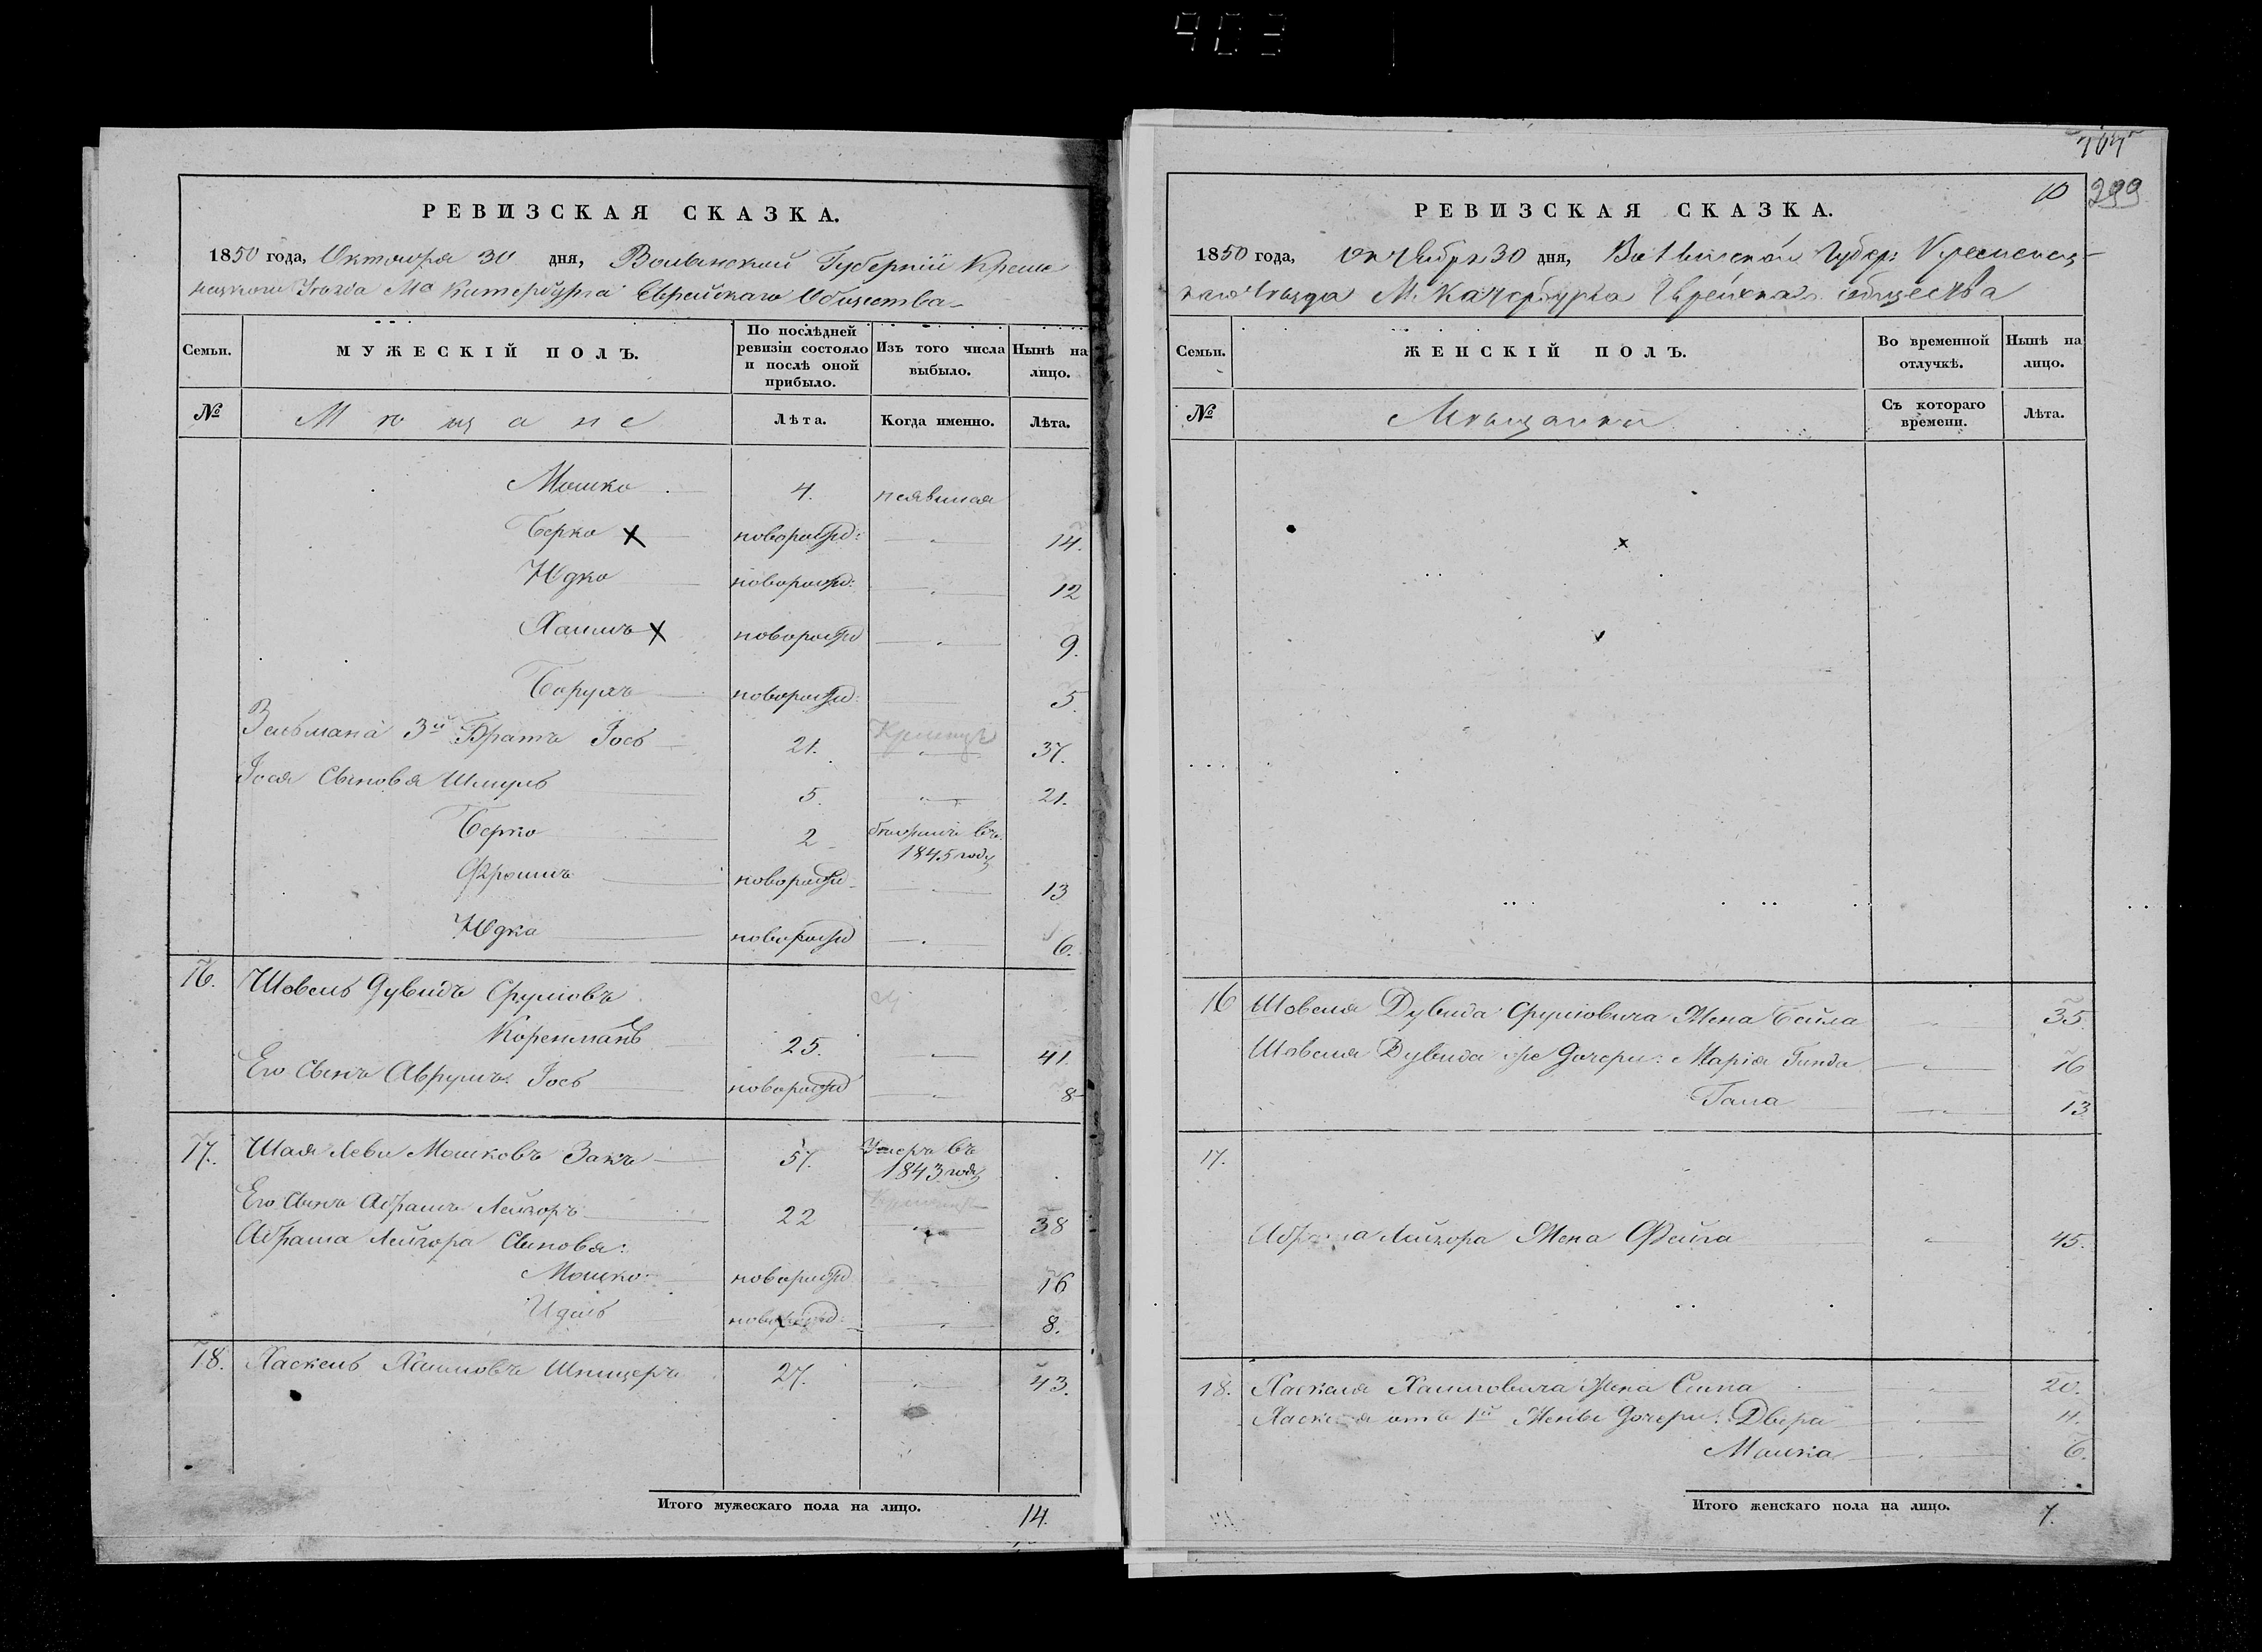 403
РЕВИЗСКАЯ СКАЗКА.
1850 года, Октября 30 дня, Волынской Губерніи Креме
нецкого Уезда Мᵃ Катербурга Еврейскаго Общества
Семьи. МУЖЕСКІЙ ПОЛЪ. По послѣдней ревизіи состояло и послѣ оной прибыло. Изъ того числа выбыло. Нынѣ на лицо.
№ Мѣщане Лѣта. Когда именно. Лѣта.
Мошко 4. неявился
Берко X новорожд: 14.
Юдко новорожд: 12
Хаимъ X новорожд 9.
Борухъ новорожд: 5.
Зельмана 3й Братъ Іось 21. 37.
Іося Сыновья Шмуль 5. 21.
Берко 2 въ 1845 году
Фроимъ новорожд 13
Юдка новорожд 6.
16. Шовель Дувидъ Сруліовъ
Коренманъ 25. 41.
Его Сынъ Аврумъ Іось новорожд 8
17. Шая Леви Мошковъ Закъ 57. Умеръ въ 1843 году
Его Сынъ Абрамъ Лейзоръ 22 38
Абрама Лейзора Сыновья:
Мошко новорожд 16
Идель новорожд: 8.
18. Хаскель Хаимовъ Шпицеръ 27. 43.
Итого мужескаго пола на лицо. 14.
10 299
РЕВИЗСКАЯ СКАЗКА.
1850 года, октября 30 дня, Волынской Губер: Кременец-
каго Уезда М. Катербурга Еврейскаго общества
Семьи. ЖЕНСКІЙ ПОЛЪ. Во временной отлучкѣ. Нынѣ на лицо.
№ Мѣщанки Съ котораго времени. Лѣта.
16 Шовеля Дувида Сруліовича Жена Бейла 35.
Шовеля Дувида же Дочери: Марія Гинда 16
Гана 13
17.
Абрама Лейзора Жена Фейга 45.
18. Хаскеля Хаимовича Жена Сима 20.
Хаскеля отъ 1й Жены Дочери: Двера 11.
Малка 6.
Итого женскаго пола на лицо. 7.